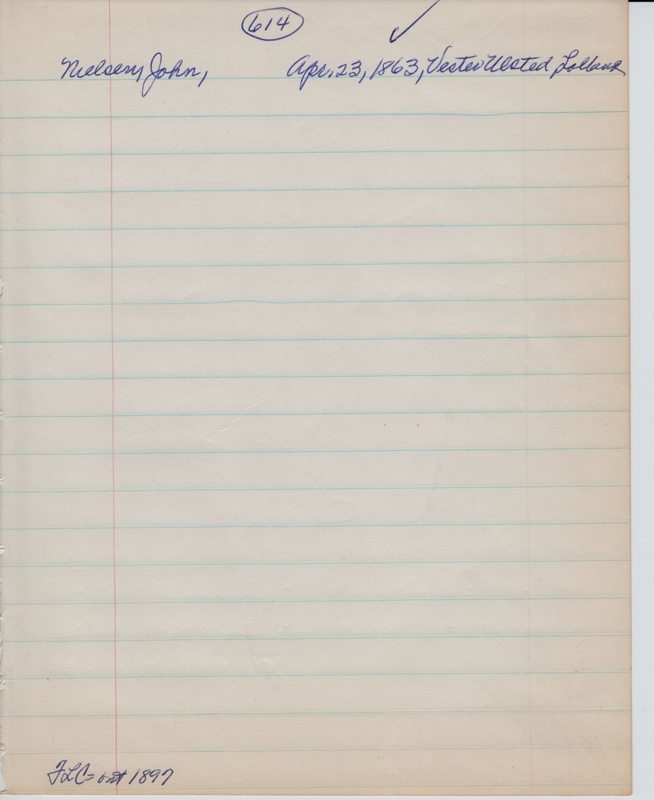 614
Nielsen, John, Apr. 23, 1863, Vester Ulsted, Lolland
FLC- 1897